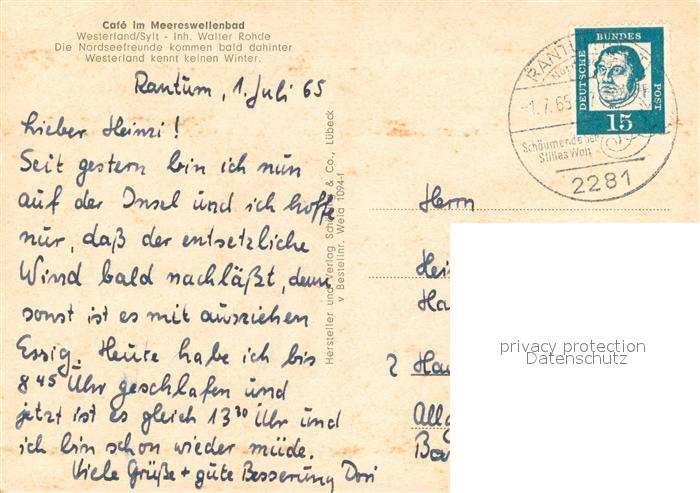 Café im Meereswellenbad
Westerland/Sylt - Inh. Walter Rohde
Die Nordseefreunde kommen bald dahinter
Westerland kennt keinen Winter.
Rantum, 1. Juli 65
Lieber Heinzi!
Seit gestern bin ich nun
auf der Insel und ich hoffe
nur, daß der entsetzliche
Wind bald nachläßt, denn
sonst ist es mit ausziehen
Essig. Heute habe ich bis
8 45 Uhr geschlafen und
jetzt ist es gleich 13 30 Uhr und
ich bin schon wieder müde.
Viele Grüße + gute Besserung Dori
Hersteller und Verlag Schöning & Co., Lübeck
Bestellnr. Weld 1094-f
RANTUM
-1.7.65
Stilles Watt
2281
DEUTSCHE BUNDES POST
15
Herrn
2
privacy protection
Datenschutz